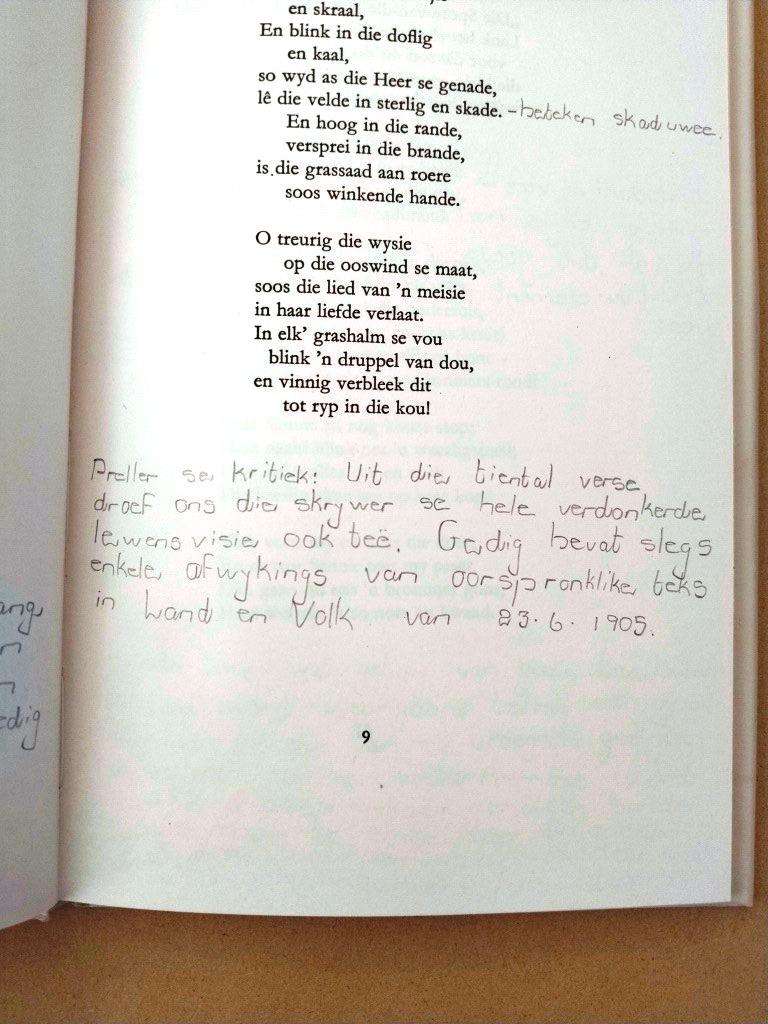 en skraal,
En blink in die doflig
en kaal,
so wyd as die Heer se genade,
lê die velde in sterlig en skade. – beteken skaduwee.
En hoog in die rande,
versprei in die brande,
is die grassaad aan roere
soos winkende hande.
O treurig die wysie
op die ooswind se maat,
soos die lied van 'n meisie
in haar liefde verlaat.
In elk' grashalm se vou
blink 'n druppel van dou,
en vinnig verbleek dit
tot ryp in die kou!
Preller se kritiek: Uit die tiental verse
droef ons die skrywer se hele verdonkerde
lewensvisie ook teë. Gedig bevat slegs
enkele afwykings van oorspronklike teks
in Land en Volk van 23.6.1905.
ang
n
n
edig
9